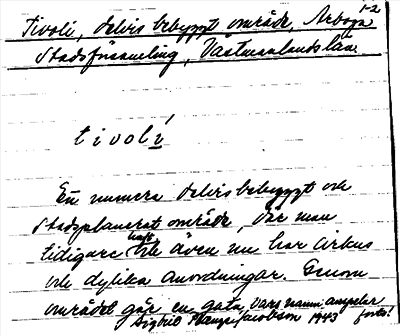 1-2
Tivoli, delvis bebyggt område, Arboga
Stadsförsamling, Västmanlands län.
tivolí
En numera delvis bebyggt och
stadsplanerat område, där man
tidigare haft och även nu har cirkus
och dylika anordningar. Genom
området går en gata, vars namn anspelar
Sigbrit Jacobson 1943 forts!